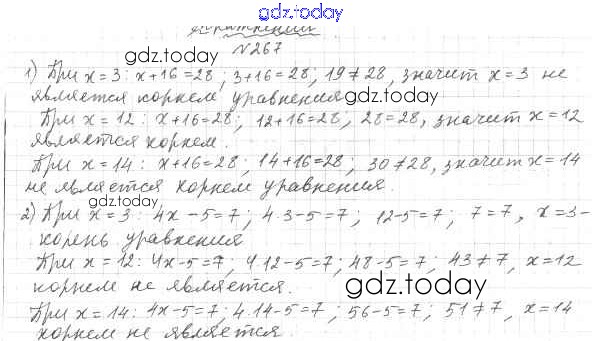 gdz.today
Упражнения
№267
gdz.today
1) При x=3: x+16=28; 3+16=28; 19≠28, значит x=3 не
является корнем уравнения
gdz.today
При x=12: x+16=28; 12+16=28; 28=28, значит x=12
является корнем.
При x=14: x+16=28; 14+16=28; 30≠28, значит x=14
не является корнем уравнения.
2) При x=3: 4x-5=7; 4·3-5=7; 12-5=7; 7=7, x=3-
корень уравнения
При x=12: 4x-5=7; 4·12-5=7; 48-5=7; 43≠7, x=12
корнем не является.
gdz.today
При x=14: 4x-5=7; 4·14-5=7; 56-5=7; 51≠7, x=14
корнем не является.